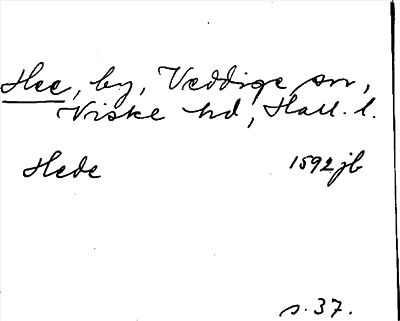 Hee, by, Veddige sn,
Viske hd, Hall. l.
Hede 1592 jb
s. 37.